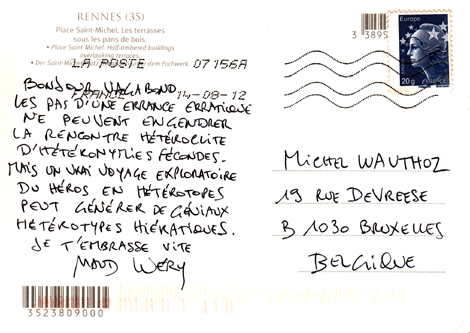 RENNES (35)
Place Saint-Michel. Les terrasses
sous les pans de bois.
• Place Saint-Michel. Half-timbered buildings
overlooking terraces.
• Der Saint-Michel
der dem Fachwerk.
LA POSTE 07156A
FRANCE 14-08-12
BONJOUR VAGABOND
LES PAS D'UNE ERRANCE ERRATIQUE
NE PEUVENT ENGENDRER
LA RENCONTRE HÉTÉROCLITE
D'HÉTÉRONYMIES FÉCONDES.
MAIS UN VRAI VOYAGE EXPLORATOIRE
DU HÉROS EN HÉTÉROTOPES
PEUT GÉNÉRER DE GÉNIAUX
HÉTÉROTYPES HIÉRATIQUES.
JE T'EMBRASSE VITE
MAUD WERY
3523809000
3 3895
Europe
20g FRANCE
MICHEL WAUTHOZ
19 RUE DEVREESE
B 1030 BRUXELLES
BELGIQUE